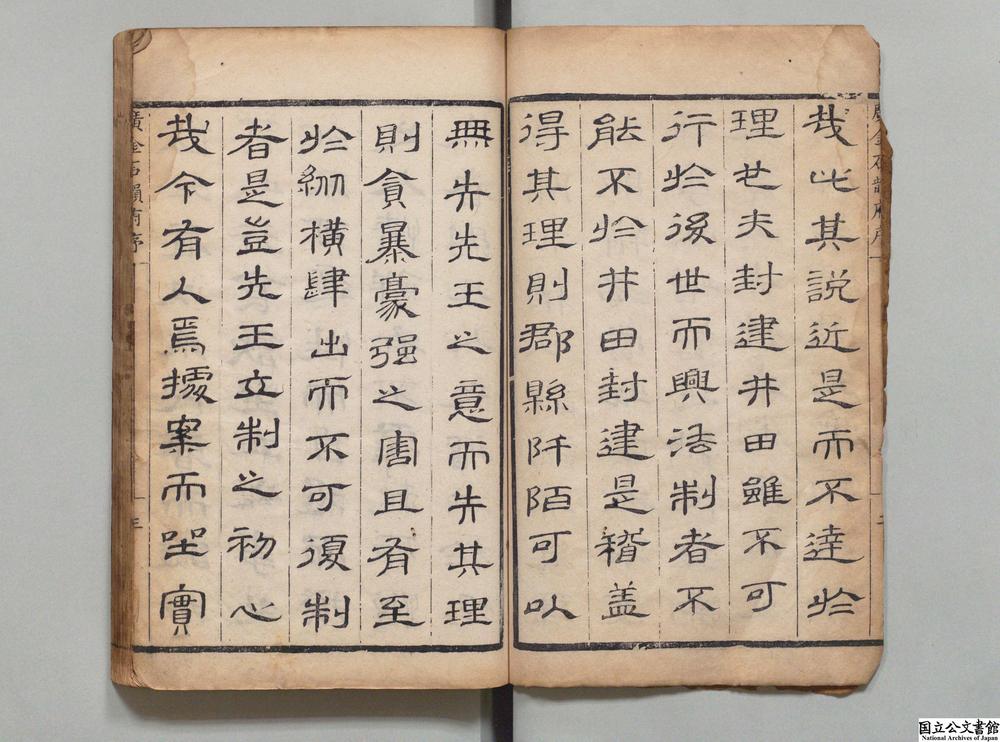 哉此其說近是而不達於
理也夫封建井田雖不可
行於後世而興法制者不
能不於井田封建是稽蓋
得其理則郡縣阡陌可以
無失先王之意而失其理
則貪暴豪强之害且有至
於紛橫肆出而不可復制
者是豈先王立制之初心
哉今有人焉據案而坐實
廣金石韻府序
三
国立公文書館
National Archives of Japan